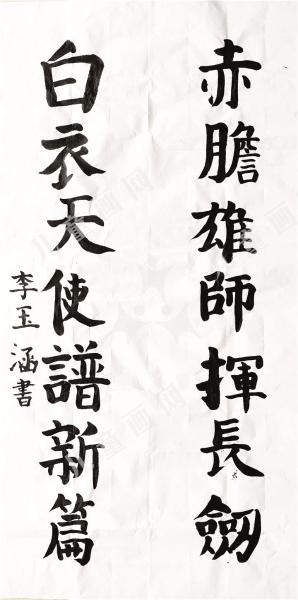 赤膽雄師揮長劒
白衣天使譜新篇
李玉涵書